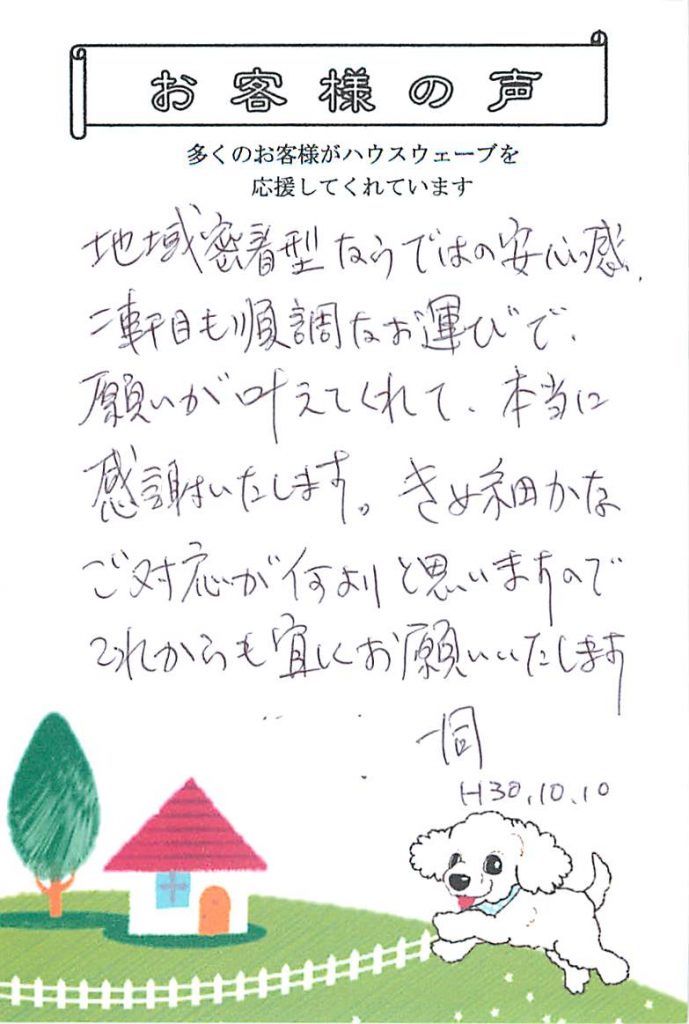 お客様の声
多くのお客様がハウスウェーブを
応援してくれています
地域密着型ならではの安心感、
二軒目も順調なお運びで、
願いが叶えてくれて、本当に
感謝いたします。きめ細かな
ご対応が何よりと思いますので
これからも宜しくお願いいたします
一同
H30.10.10